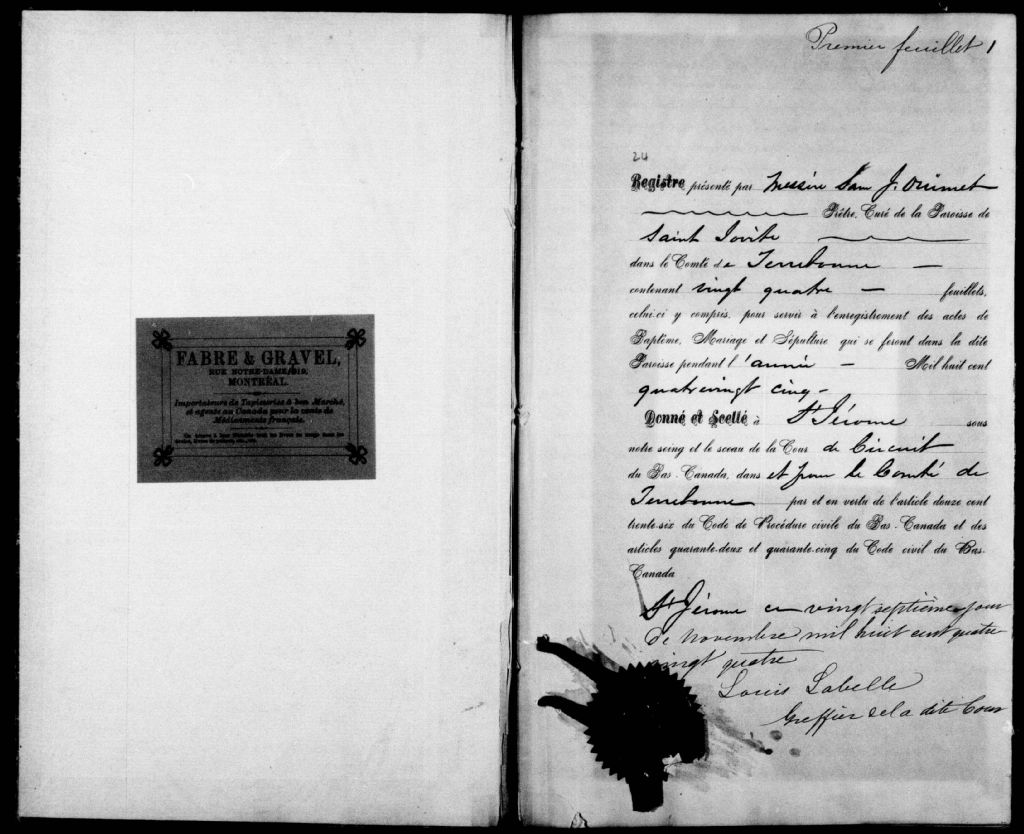 FABRE & GRAVEL,
RUE NOTRE-DAME, 219,
MONTRÉAL.
Importateurs de Tapisseries à bon Marché,
et agents au Canada pour la vente de
Médicaments français.
Premier feuillet 1
24
Registre présenté par Messire Sam J. Ouimet
Prêtre, Curé de la Paroisse de
Saint Jovite
dans le Comté de Terrebonne —
contenant vingt quatre — feuillets,
celui-ci y compris, pour servir à l'enregistrement des actes de
Baptême, Mariage et Sépulture qui se feront dans la dite
Paroisse pendant l'année — Mil huit cent
quatrevingt cinq -
Donné et Scellé à St Jérome sous
notre seing et le sceau de la Cour de Circuit
du Bas-Canada, dans et pour le Comté de
Terrebonne par et en vertu de l'article douze cent
trente-six du Code de Procédure civile du Bas-Canada et des
articles quarante-deux et quarante-cinq du Code civil du Bas-
Canada
St Jérome ce vingt septième jour
de novembre mil huit cent quatre
vingt quatre
Louis Labelle
Greffier de la dite Cour